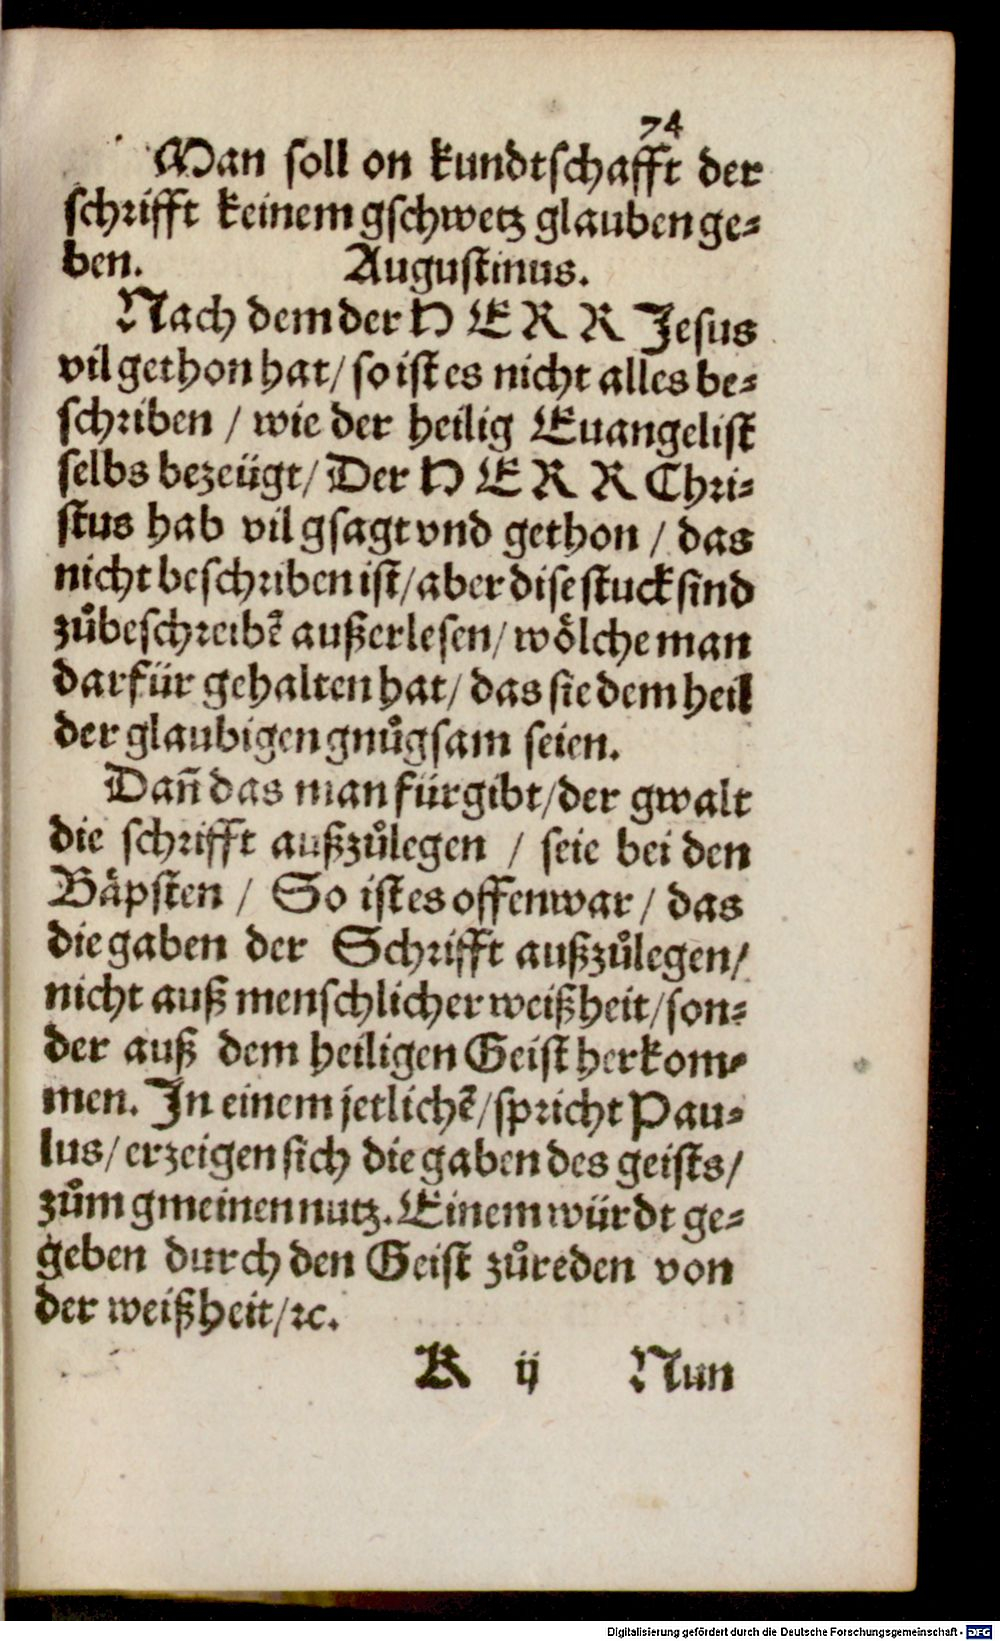 74
Man soll on kundtschafft der
schrifft keinem gschwetz glauben ge⸗
ben. Augustinus.
Nach dem der HERR Jesus
vil gethon hat/ so ist es nicht alles be⸗
schriben / wie der heilig Euangelist
selbs bezeügt/ Der HERR Chri⸗
stus hab vil gsagt vnd gethon / das
nicht beschriben ist/ aber dise stuck sind
zůbeschreibē außerlesen/ wölche man
darfür gehalten hat/ das sie dem heil
der glaubigen gnůgsam seien.
Dañ das man fürgibt/ der gwalt
die schrifft außzůlegen / seie bei den
Bäpsten / So ist es offenwar / das
die gaben der Schrifft außzůlegen/
nicht auß menschlicher weißheit/ son⸗
der auß dem heiligen Geist herkom⸗
men. In einem jetlichē/ spricht Pau⸗
lus/ erzeigen sich die gaben des geists/
zům gmeinen nutz. Einem würdt ge⸗
geben durch den Geist zůreden von
der weißheit/ ꝛc.
K ij Nun
Digitalisierung gefördert durch die Deutsche Forschungsgemeinschaft - DFG